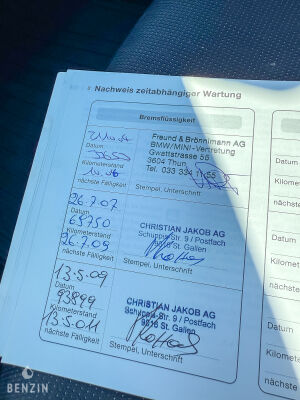 Nachweis zeitabhängiger Wartung
Bremsflüssigkeit
Freund & Brönnimann AG
BMW/MINI-Vertretung
Gwattstrasse 55
3604 Thun
Tel. 033 334
Datum
Kilometerstand
nächste Fälligkeit
Stempel, Unterschrift
26.7.07
Datum
65750
Kilometerstand
26.7.09
nächste Fälligkeit
CHRISTIAN JAKOB AG
Schuppis-Str. 9 / Postfach
9016 St. Gallen
Stempel, Unterschrift
13.5.09
Datum
93899
Kilometerstand
13.5.011
nächste Fälligkeit
CHRISTIAN JAKOB AG
Schuppis-Str. 9 / Postfach
9016 St. Gallen
Stempel, Unterschrift
Datum
Kilometer
nächste
Datum
Kilometers
nächste
Datum
Kilometer
nächste
BENZIN